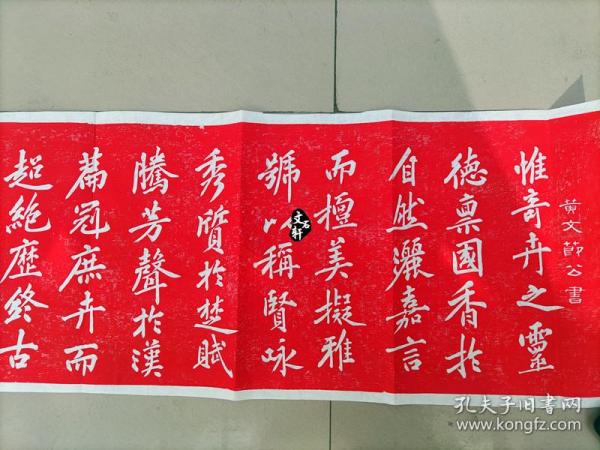 黄文節公書
惟奇卉之靈
德稟國香於
自然灑嘉言
而擅美擬雅
號以稱賢咏
秀質於楚賦
騰芳聲於漢
篇冠庶卉而
超絶歷終古
文石軒
孔夫子旧书网
www.kongfz.com